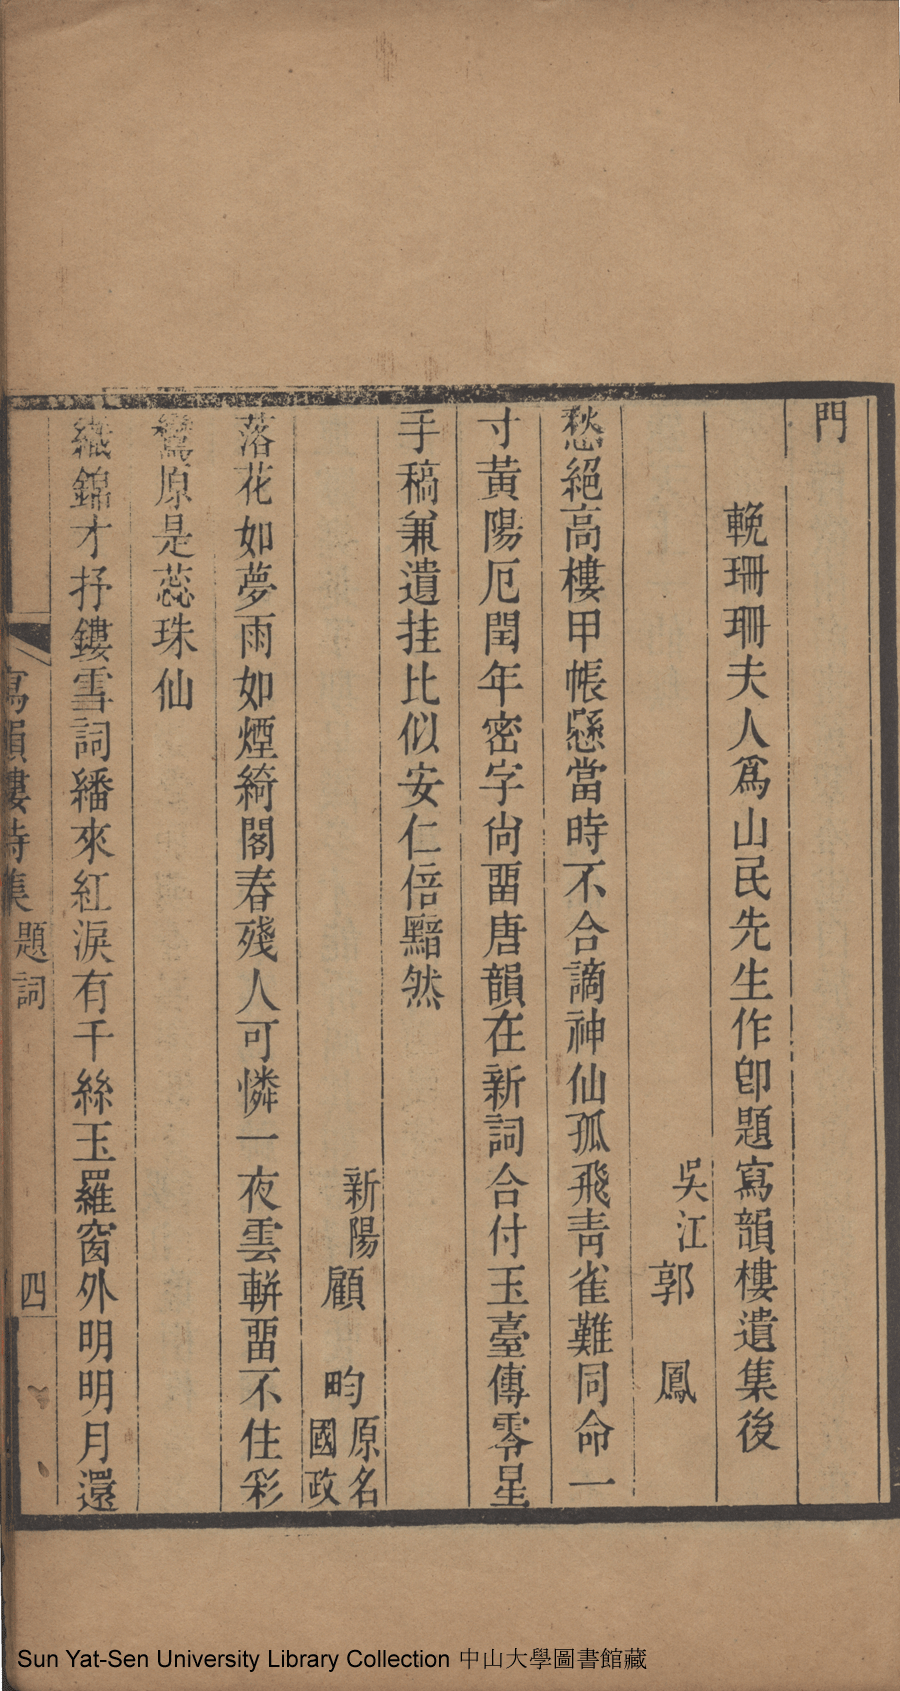 門
輓珊珊夫人爲山民先生作卽題寫韻樓遺集後
吳江郭 鳳
愁絕高樓甲帳懸當時不合謫神仙孤飛靑雀難同命一
寸黃陽厄閏年密字尙畱唐韻在新詞合付玉臺傳零星
手稿兼遺挂比似安仁倍黯然
新陽顧 畇原名
國政
落花如夢雨如煙綺閣春殘人可憐一夜雲軿畱不住彩
鸞原是蕊珠仙
織錦才抒鏤雪詞繙來紅淚有千絲玉羅窗外明明月還
寫韻樓詩集
題詞
四
Sun Yat-Sen University Library Collection 中山大學圖書館藏